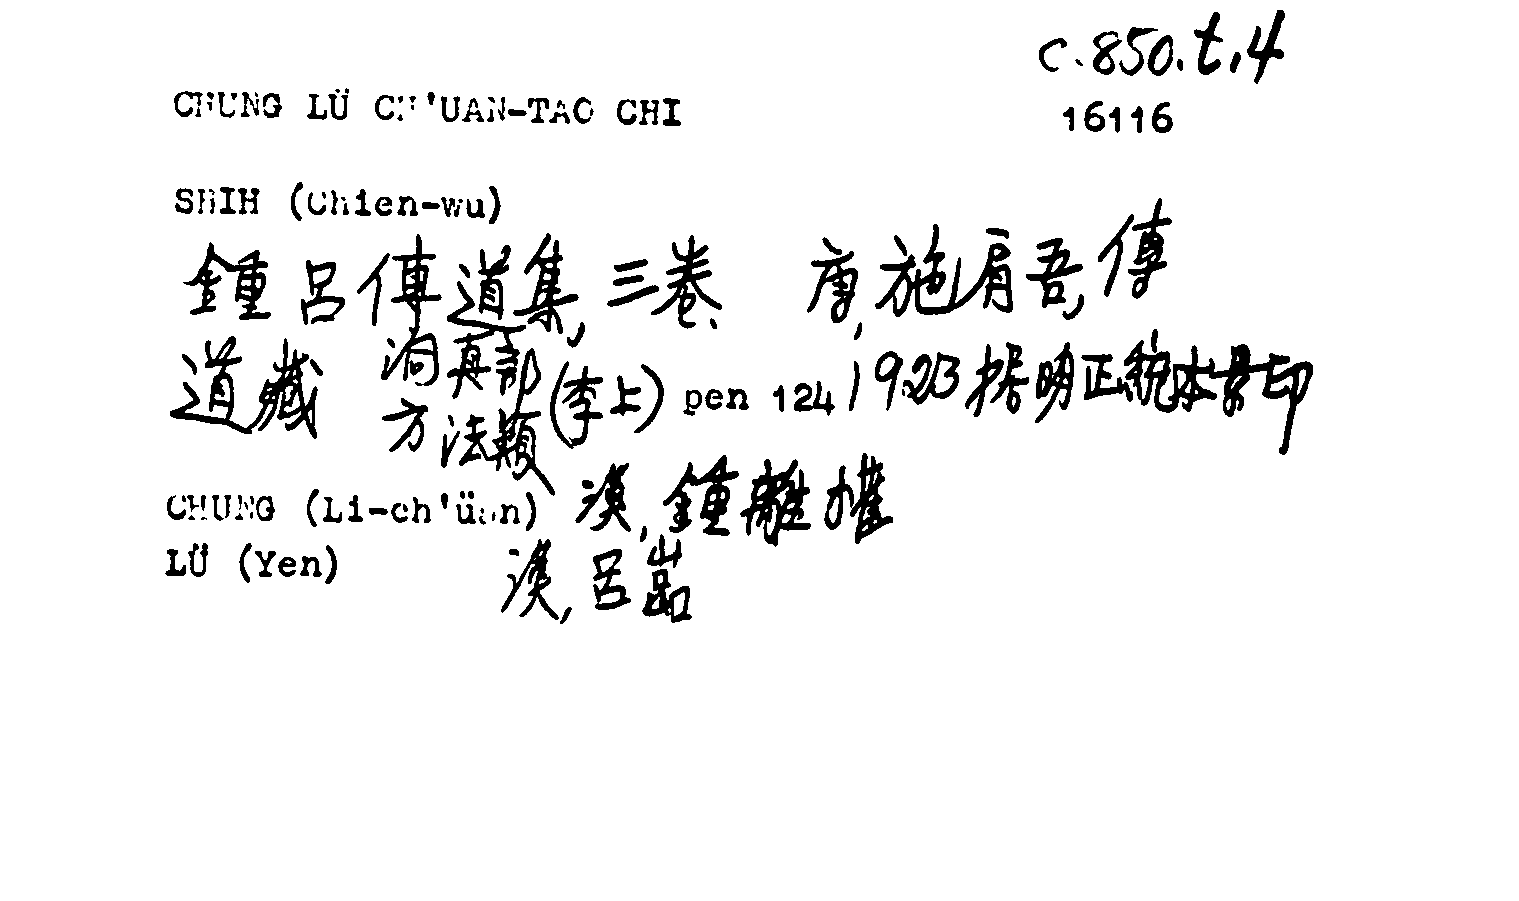 c.850.t.4
CHUNG LÜ CH'UAN-TAO CHI
16116
SHIH (Chien-wu)
鍾呂傳道集, 三卷、 唐, 施肩吾, 傳
道藏 洞真部 方法類 (李上) pen 124 1923 據明正統本景印
CHUNG (Li-ch'üan) 漢, 鍾離權
LÜ (Yen) 漢, 呂嵒